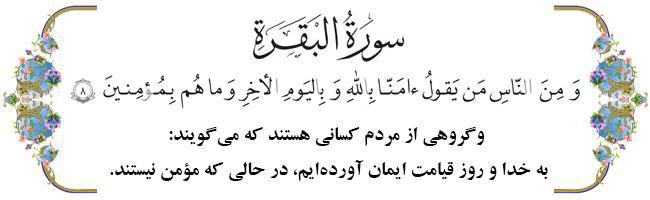 سورة البقرة
وَ مِنَ النَّاسِ مَن يَقولُ ءامَنّا بِاللهِ وَ بِاليَومِ الأخِرِ وَ ما هُم بِمُؤمِنينَ ﴿٨﴾
وگروهی از مردم کسانی هستند که می‌گویند:
به خدا و روز قیامت ایمان آورده‌ایم، در حالی که مؤمن نیستند.